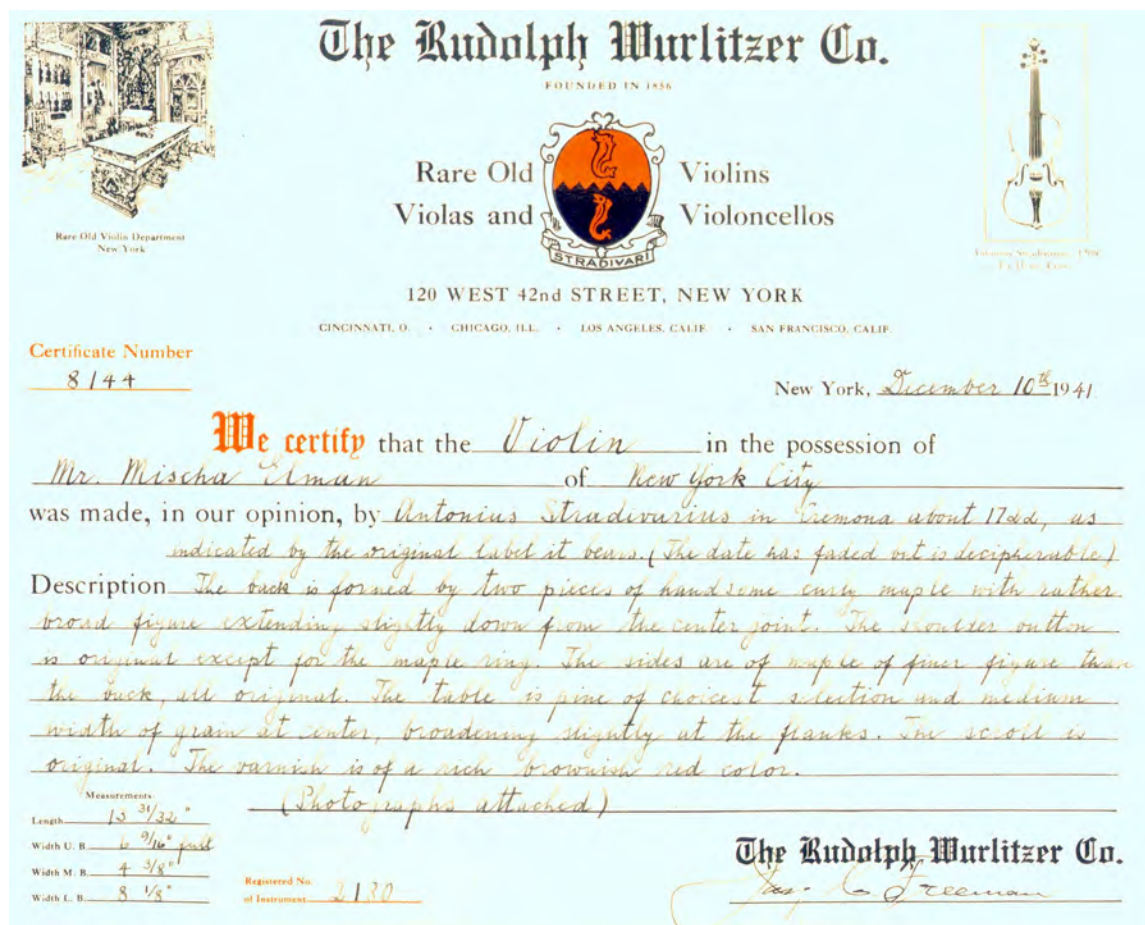 The Rudolph Wurlitzer Co.
FOUNDED IN 1856
Rare Old Violins
Violas and Violoncellos
STRADIVARI
Rare Old Violin Department
New York
120 WEST 42nd STREET, NEW YORK
CINCINNATI, O. • CHICAGO, ILL. • LOS ANGELES, CALIF. • SAN FRANCISCO, CALIF.
Certificate Number
8144
New York, December 10th 1941
We certify that the Violin in the possession of
Mr. Mischa Elman of New York City
was made, in our opinion, by Antonius Stradivarius in Cremona about 1722, as
indicated by the original label it bears. (The date has faded but is decipherable)
Description The back is formed by two pieces of handsome curly maple with rather
broad figure extending slightly down from the center joint. The shoulder button
is original except for the maple ring. The sides are of maple of finer figure than
the back, all original. The table is pine of choicest selection and medium
width of grain at center, broadening slightly at the flanks. The scroll is
original. The varnish is of a rich brownish red color.
(Photographs attached)
Measurements
Length 13 31/32"
Width U. B. 6 9/16" full
Width M. B. 4 3/8"
Width L. B. 8 1/8"
Registered No.
of Instrument 2130
The Rudolph Wurlitzer Co.
Jay C Freeman